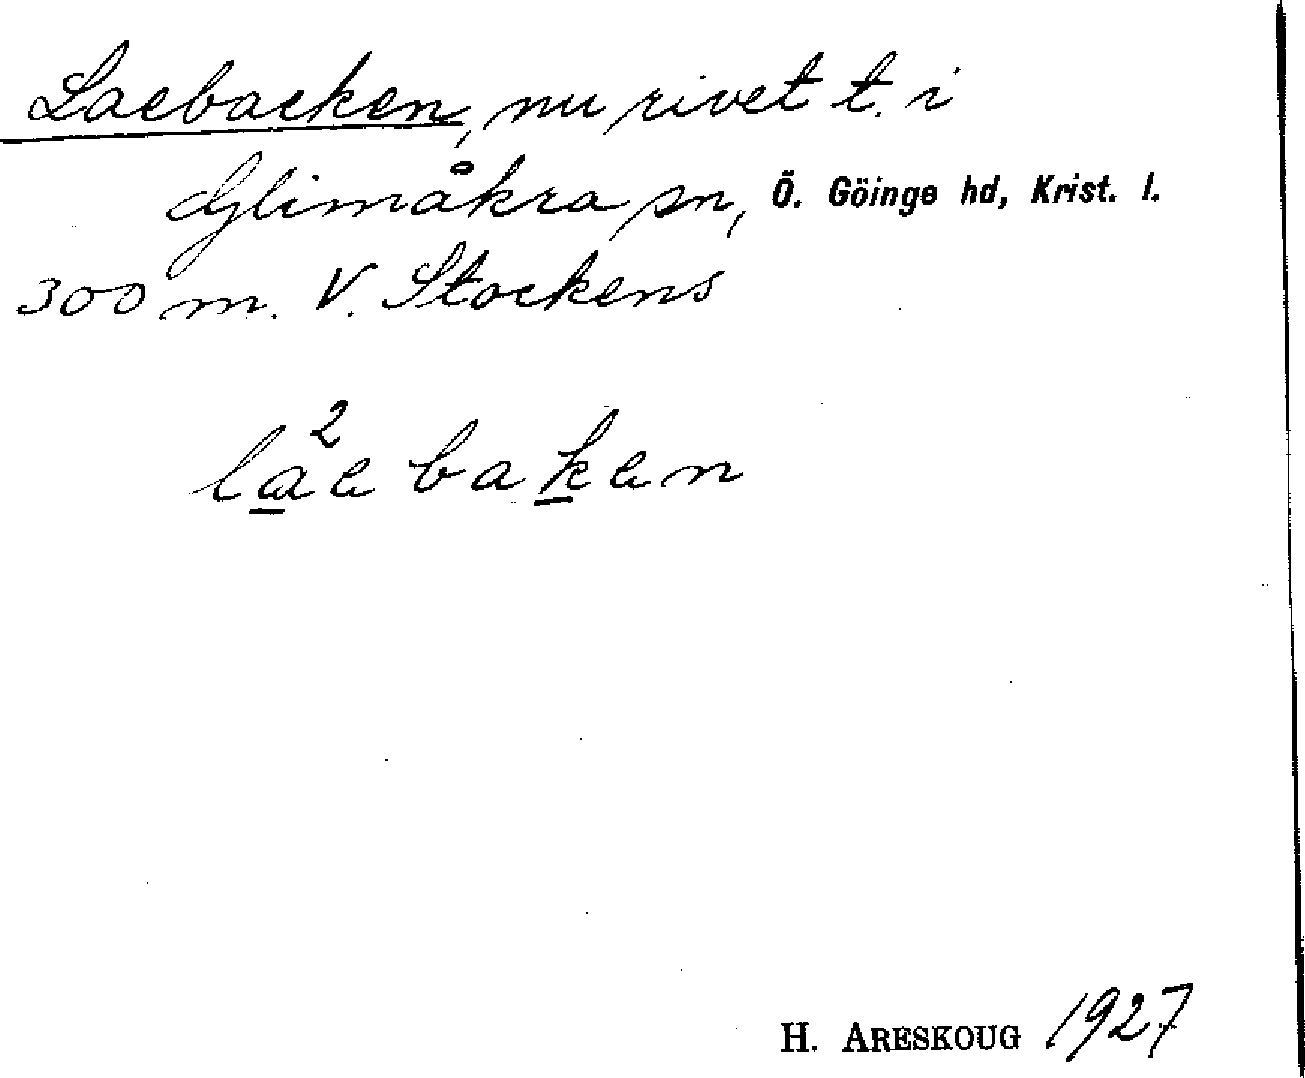 Laebacken, nu rivet t. i
Glimåkra sn, Ö. Göinge hd, Krist. l.
300 m. V. Stockens
la²e baken
H. ARESKOUG 1927